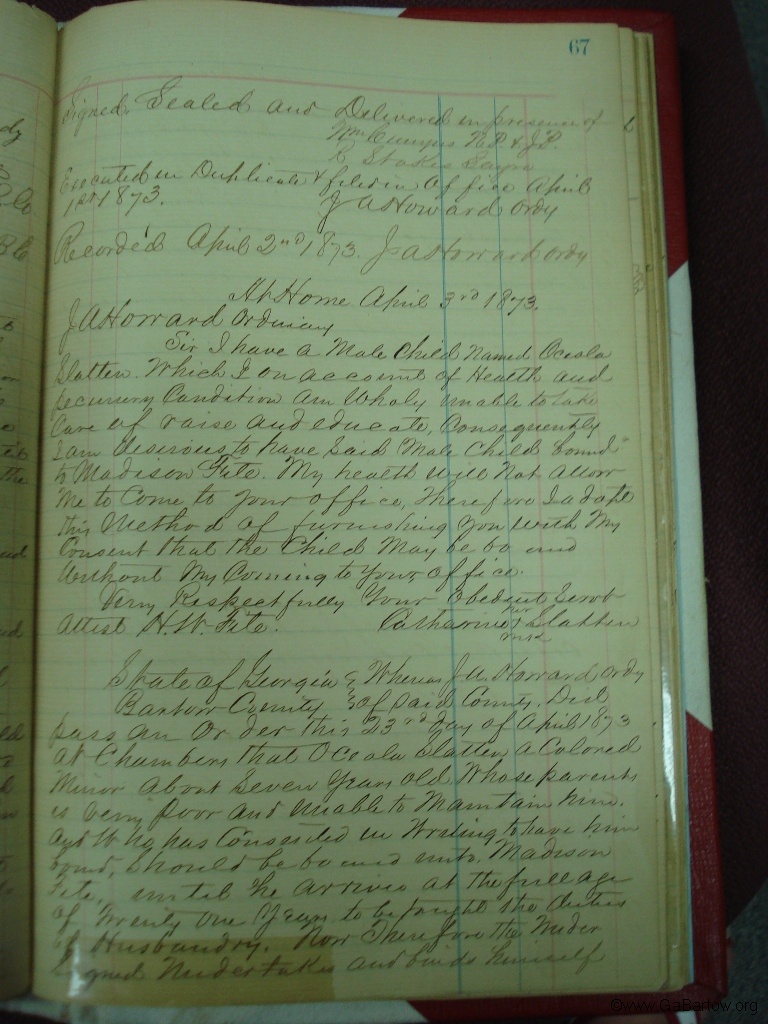 67
Signed Sealed and Delivered in presence of
Wm N.P & J.P.
R Stokes
Executed in Duplicate & filed in office April
1st 1873. J A Howard Ordy
Recorded April 2nd 1873. J A Howard Ordy
At Home April 3rd 1873.
J A Howard Ordinary
Sir I have a Male Child Named Oceola
Slatten. Which I on account of Health and
pecunery Condition am Wholy unable to take
Care of raise and educate, Consequently
I am desirous to have Said Male Child bound
to Madison Fite. My health will Not allow
Me to Come to your office, Therefore I adopt
this Method of furnishing you with My
Consent that the Child May be bound
Without My Coming to Your office.
Very Respectfully Your Obedient Servt
Attest H. W. Fite. Catharine her x mrk Slatten
State of Georgia Whereas J. A. Howard Ordy
Bartow County of Said County. Did
pass an Order this 23rd day of April 1873
at Chambers that Oceola Slatten a Colored
Minor about Seven Years old Whose parents
is very poor and unable to Maintain him.
And Who has Consented in Writing to have him
bound, Should be bound unto Madison
Fite, until he arrives at the full age
of Twenty One Years. to be taught the duties
of Husbandry. Now Therefore the Under
Signed Undertakes and binds himself
©www.GaBartow.org